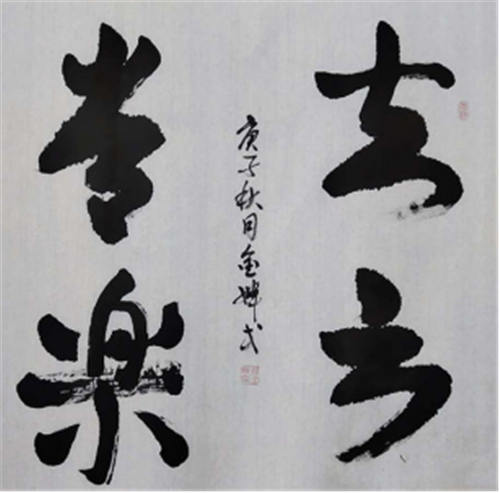 知足
常樂
庚子秋月金